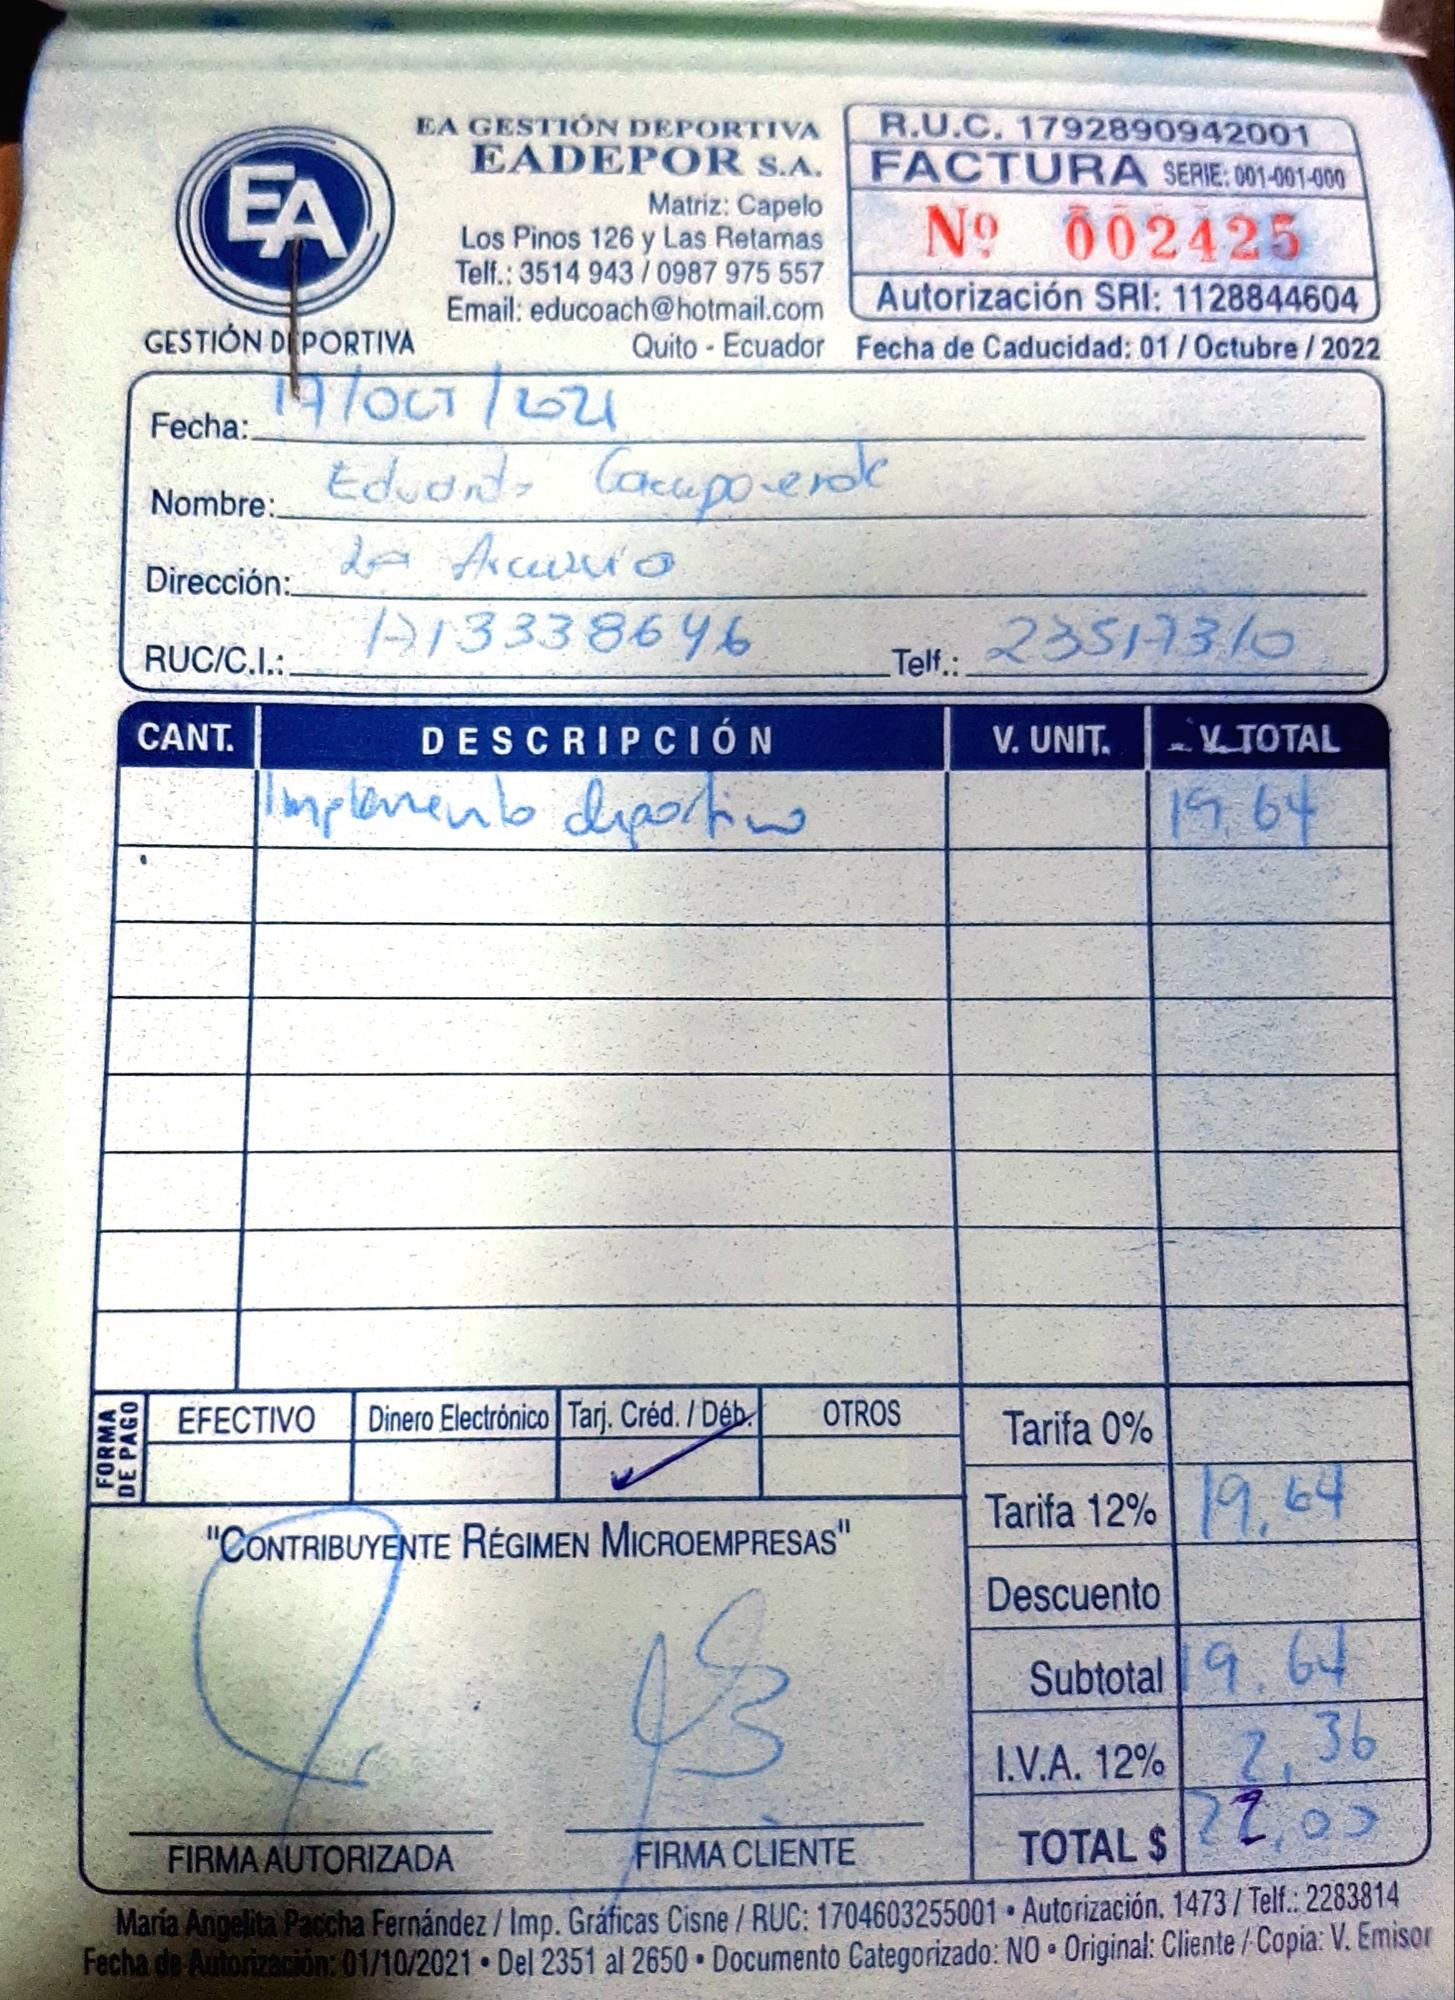 EA
GESTIÓN DEPORTIVA
EA GESTIÓN DEPORTIVA
EADEPOR S.A.
Matriz: Capelo
Los Pinos 126 y Las Retamas
Telf.: 3514 943 / 0987 975 557
Email: educoach@hotmail.com
Quito - Ecuador
R.U.C. 1792890942001
FACTURA SERIE: 001-001-000
Nº 002425
Autorización SRI: 1128844604
Fecha de Caducidad: 01 / Octubre / 2022
Fecha: 17/OCT/2021
Nombre: Eduardo Campoverde
Dirección: La Armenia
RUC/C.I.: 1713338646 Telf.: 23517310
CANT. DESCRIPCIÓN V. UNIT. V. TOTAL
Implemento deportivo 19.64
FORMA DE PAGO
EFECTIVO Dinero Electrónico Tarj. Créd. / Déb. OTROS
Tarifa 0%
Tarifa 12% 19.64
Descuento
Subtotal 19.64
I.V.A. 12% 2,36
TOTAL $ 22,00
"CONTRIBUYENTE RÉGIMEN MICROEMPRESAS"
FIRMA AUTORIZADA FIRMA CLIENTE
María Angelita Paccha Fernández / Imp. Gráficas Cisne / RUC: 1704603255001 • Autorización. 1473 / Telf.: 2283814
Fecha de Autorización: 01/10/2021 • Del 2351 al 2650 • Documento Categorizado: NO • Original: Cliente / Copia: V. Emisor